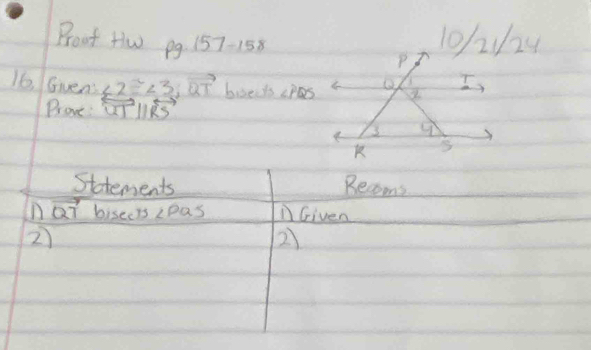 Proof HW pg 157-158
10/21/24
16. Given: ∠2 ≅ ∠3, QT bisects ∠PQS
Prove: QT || RS
P
Q 1 T
2
3 4
R S
Statements Reasons
1) QT bisects ∠PQS 1) Given
2) 2)